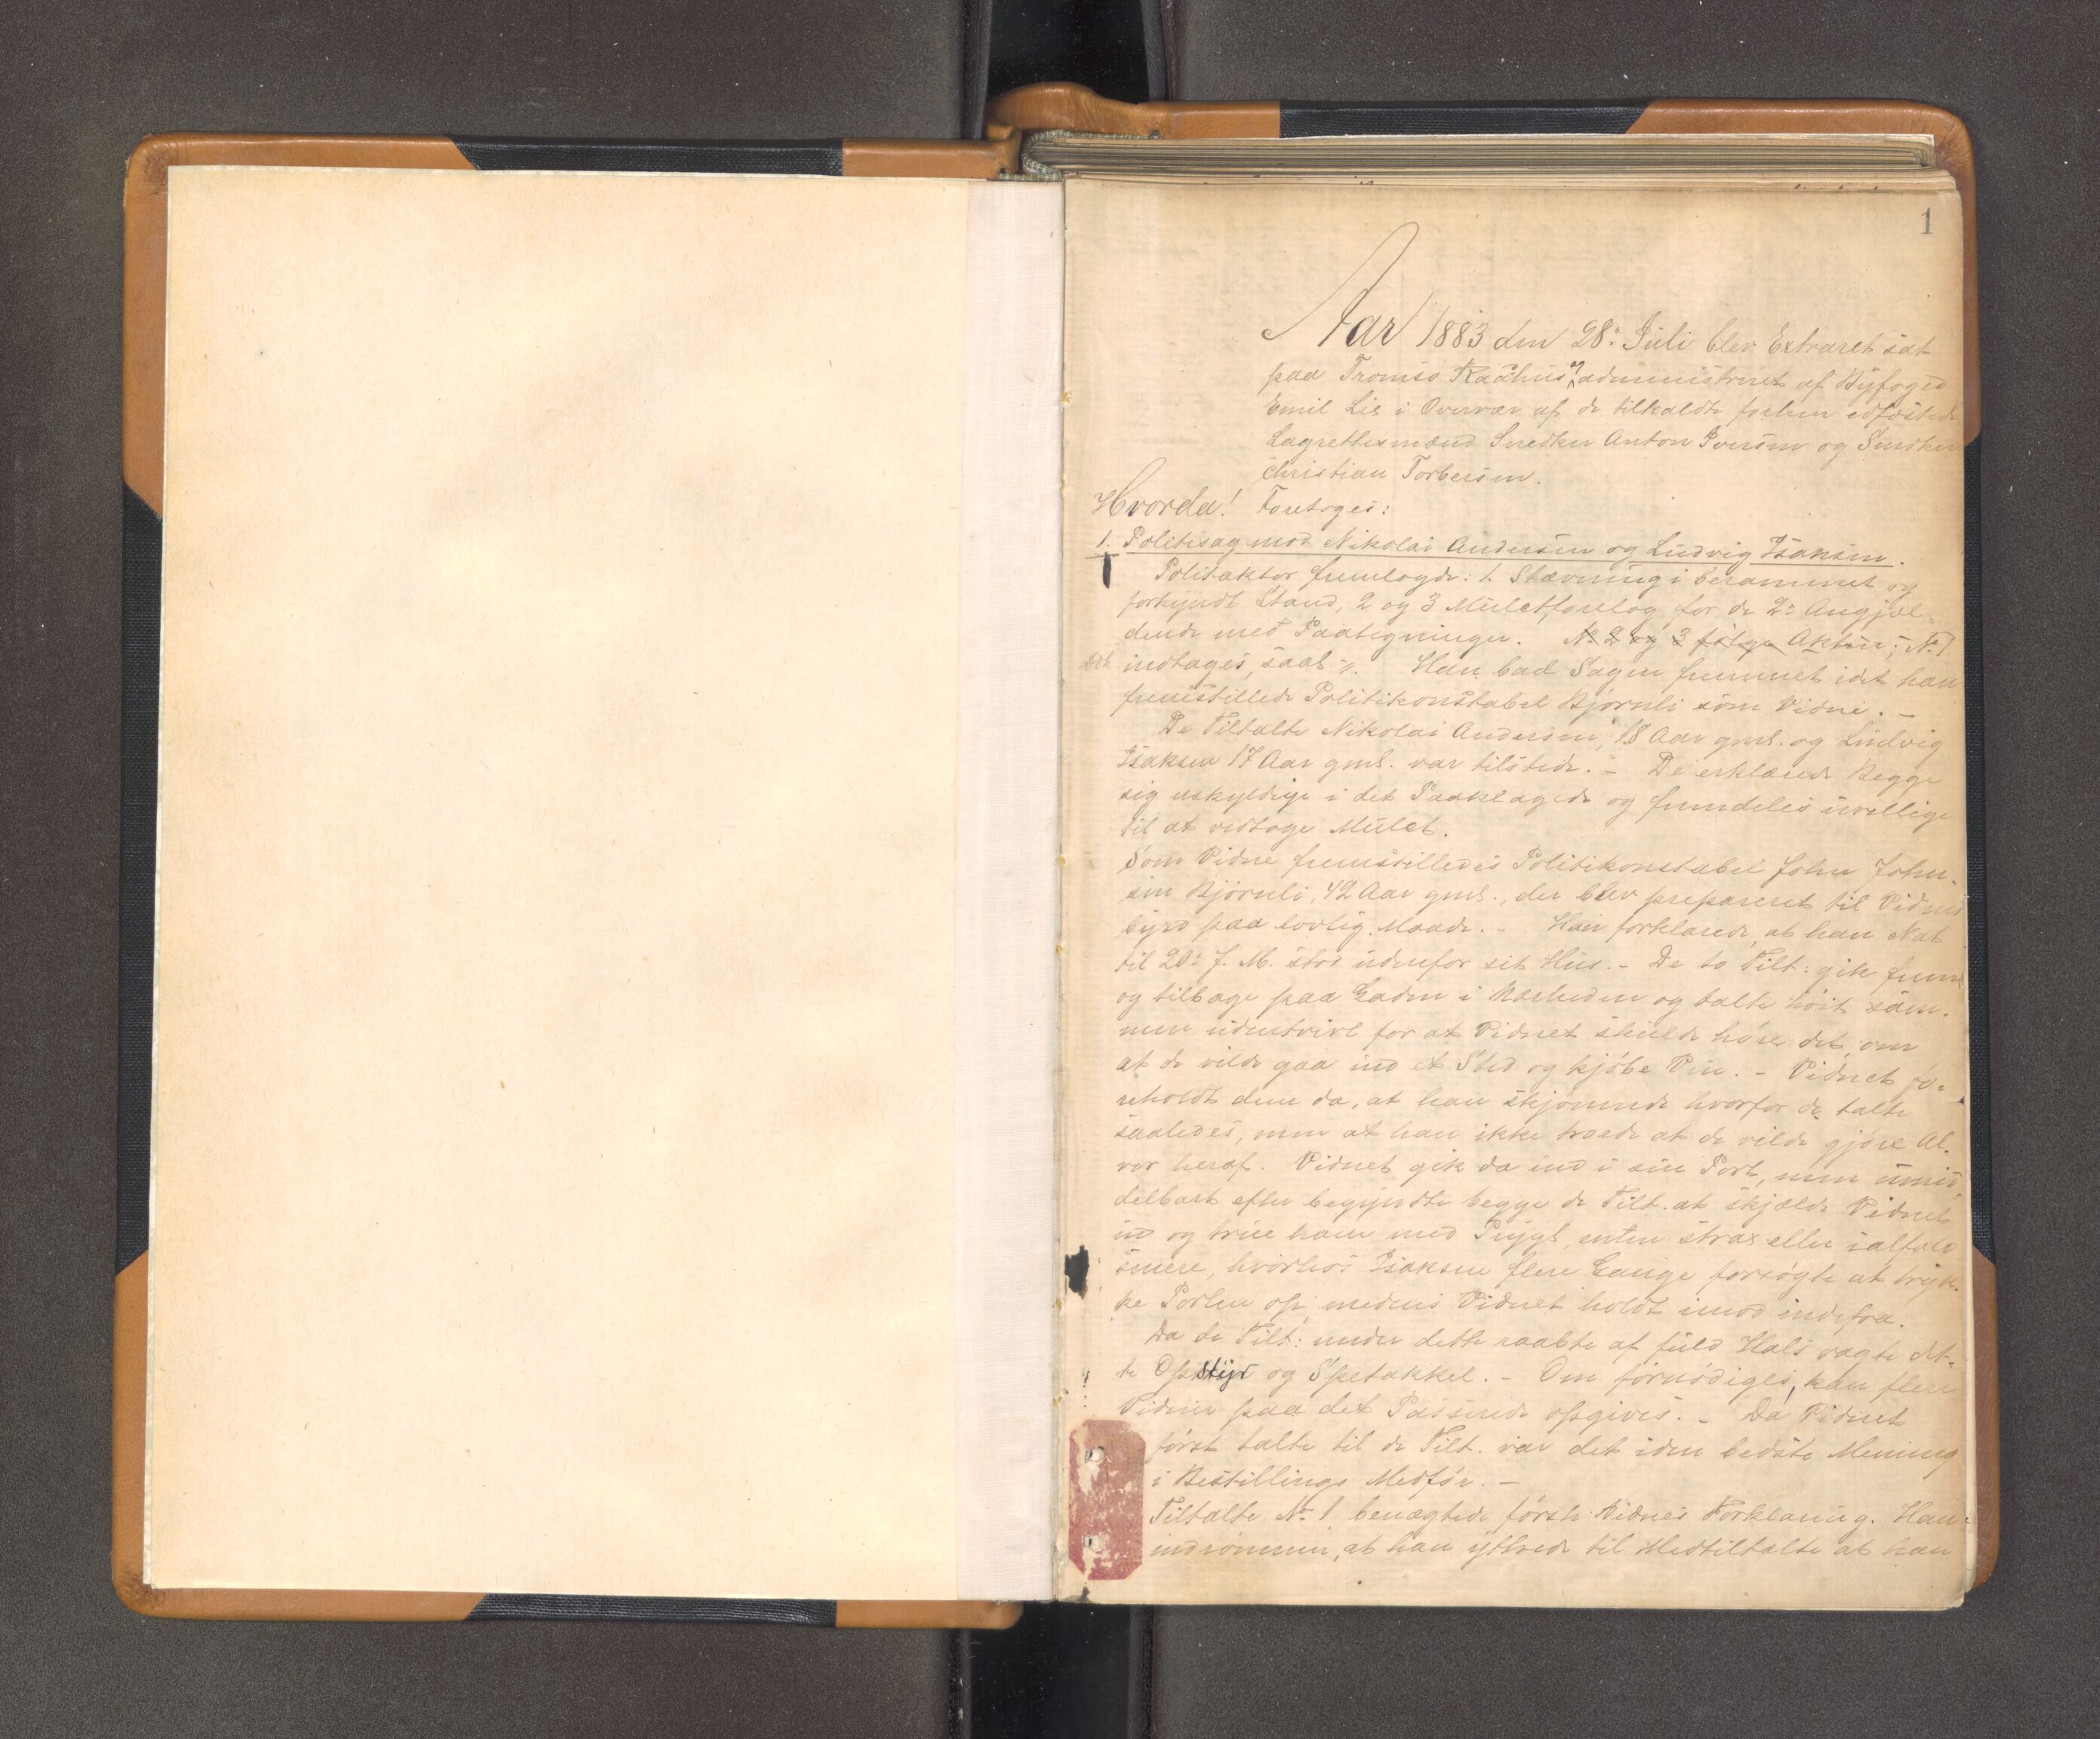 1
Aar 1883 den 28: Juli blev Extraret sat
paa Tromsø Raadhus og administreret af Byfoged
Emil Lie i Overvær af de tilkaldte forhen edfæstede
Lagrettesmænd Snedker Anton Iversen og Snedker
Christian Torbersen.
Hvorda! Foretoges:
1. Politisag mod Nikolai Andersen og Ludvig Isaksen.
Politiaktor fremlagde: 1. Stævning i berammet og
forkyndt Stand, 2 og 3 Mulctforelæg for de 2: Angjæl-
dende med Paategninger. No 2 og 3 følge Akten; No 1
indtages, saal. Han bad Sagen fremmet idet han
fremstillede Politikonstabel Bjørnli som Vidne. -
De Tiltalte Nikolai Andersen, 18 Aar gml. og Ludvig
Isaksen 17 Aar gml. var tilstede. - De erklærede Begge
sig uskyldige i det Paaklagede og fremdeles uvillige
til at vedtage Mulct.
Som Vidne fremstilledes Politikonstabel John John-
sen Bjørnli, 42 Aar gml., der blev prepareret til Vidnes
byrd paa lovlig Maade. - Han forklarede, at han Nat
til 20: f. M. stod udenfor sit Hus. - De to Tilt: gik frem
og tilbage paa Gaden i Nærheden og talte høit sam-
men udentvivl for at Vidnet skulde høre det, om
at de vilde gaa ind et Sted og kjøbe Vin. - Vidnet fo-
reholdt dem da, at han skjønnede hvorfor de talte
saaledes, men at han ikke troede at de vilde gjøre Al-
vor heraf. Vidnet gik da ind i sin Port, men umid-
delbart efter begyndte begge de Tilt. at skjælde Vidnet
ud og true ham med Prygl, enten strax eller ialfald
senere, hvorhos Isaksen flere Gange forsøgte at tryk-
ke Porten op, medens Vidnet holdt imod indefra.
Da de Tilt: under dette raabte af fuld Hals vagte det-
te Opstyr og Spetakkel. - Om fornødiges, kan flere
Vidner paa det Passerede opgives. - Da Vidnet
først talte til de Tilt. var det i den bedste Mening
i Bestillings Medfør. -
Tiltalte No 1 benægtede første Vidnes Forklaring. Han
indrømmer, at han ytrede til Medtiltalte at han